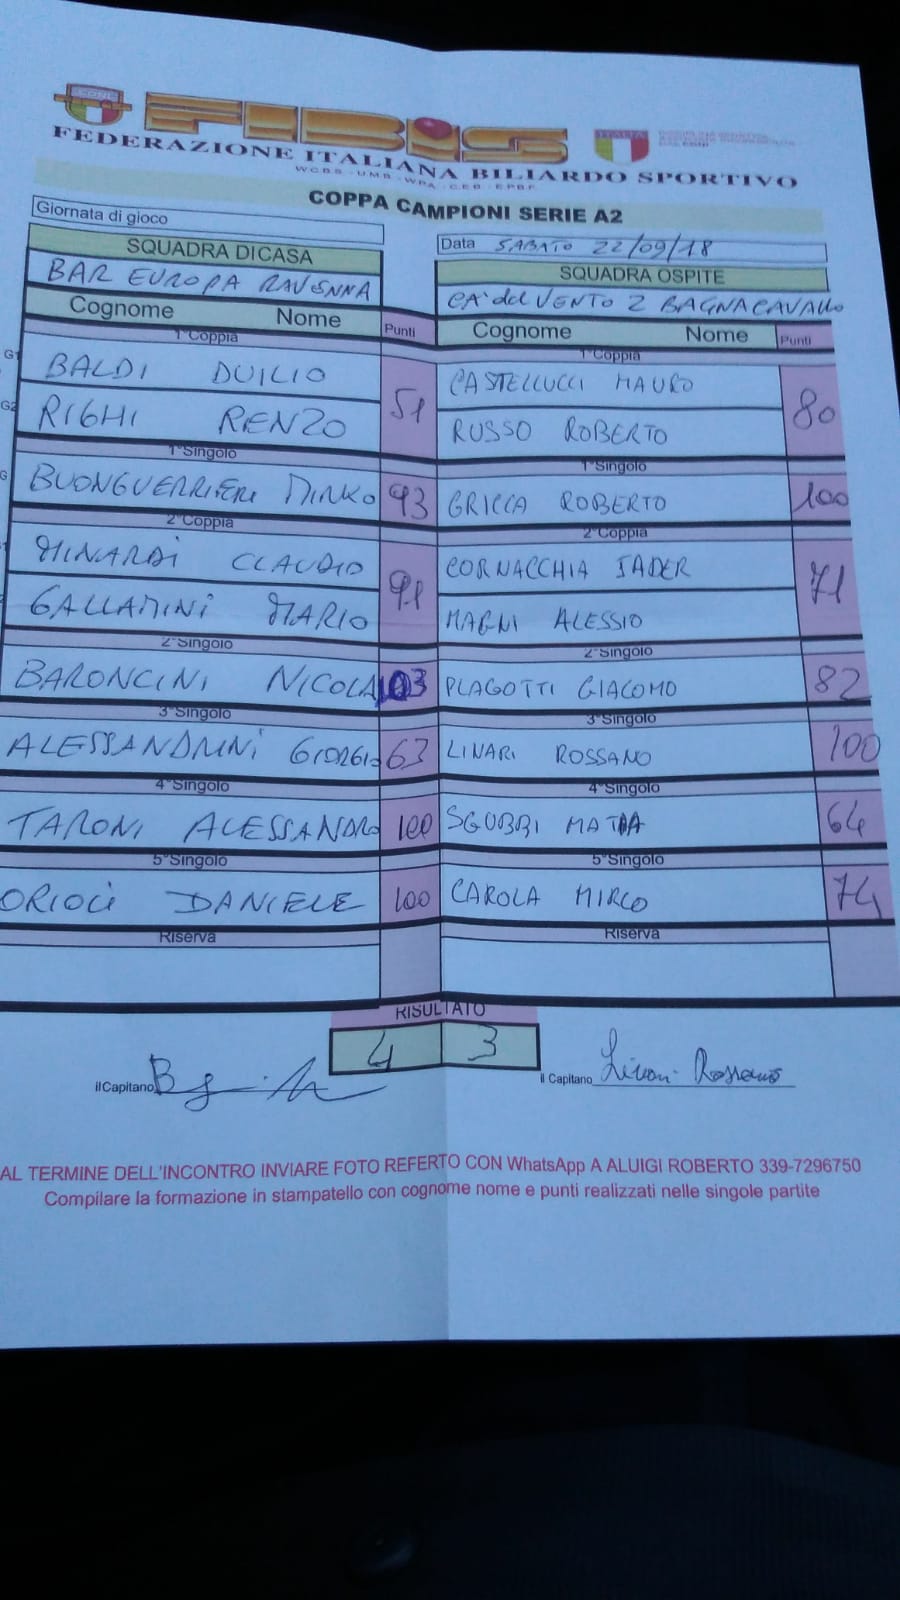 FIBiS
FEDERAZIONE ITALIANA BILIARDO SPORTIVO
W.C.B.S. - U.M.B. - W.P.A. - C.E.B. - E.P.B.F.
COPPA CAMPIONI SERIE A2
Giornata di gioco
Data SABATO 22/09/18
SQUADRA DI CASA
SQUADRA OSPITE
BAR EUROPA RAVENNA
CA' del VENTO 2 BAGNACAVALLO
Cognome Nome Punti
Cognome Nome Punti
1°Coppia
1°Coppia
G1 BALDI DUILIO 51
CASTELLUCCI MAURO 80
G2 RIGHI RENZO
RUSSO ROBERTO
1°Singolo
1°Singolo
G BUONGUERRIERI MIRKO 93
GRICCA ROBERTO 100
2°Coppia
2°Coppia
MINARDI CLAUDIO 91
CORNACCHIA JADER 71
GALLAMINI MARIO
MAGNI ALESSIO
2°Singolo
2°Singolo
BARONCINI NICOLA 103
PLAGOTTI GIACOMO 82
3°Singolo
3°Singolo
ALESSANDRINI GIORGIO 63
LINARI ROSSANO 100
4°Singolo
4°Singolo
TARONI ALESSANDRO 100
SGUBBI MATIA 64
5°Singolo
5°Singolo
ORIOLI DANIELE 100
CAROLA MIRCO 74
Riserva
Riserva
RISULTATO
4 3
il Capitano
il Capitano Linari Rossano
AL TERMINE DELL'INCONTRO INVIARE FOTO REFERTO CON WhatsApp A ALUIGI ROBERTO 339-7296750
Compilare la formazione in stampatello con cognome nome e punti realizzati nelle singole partite